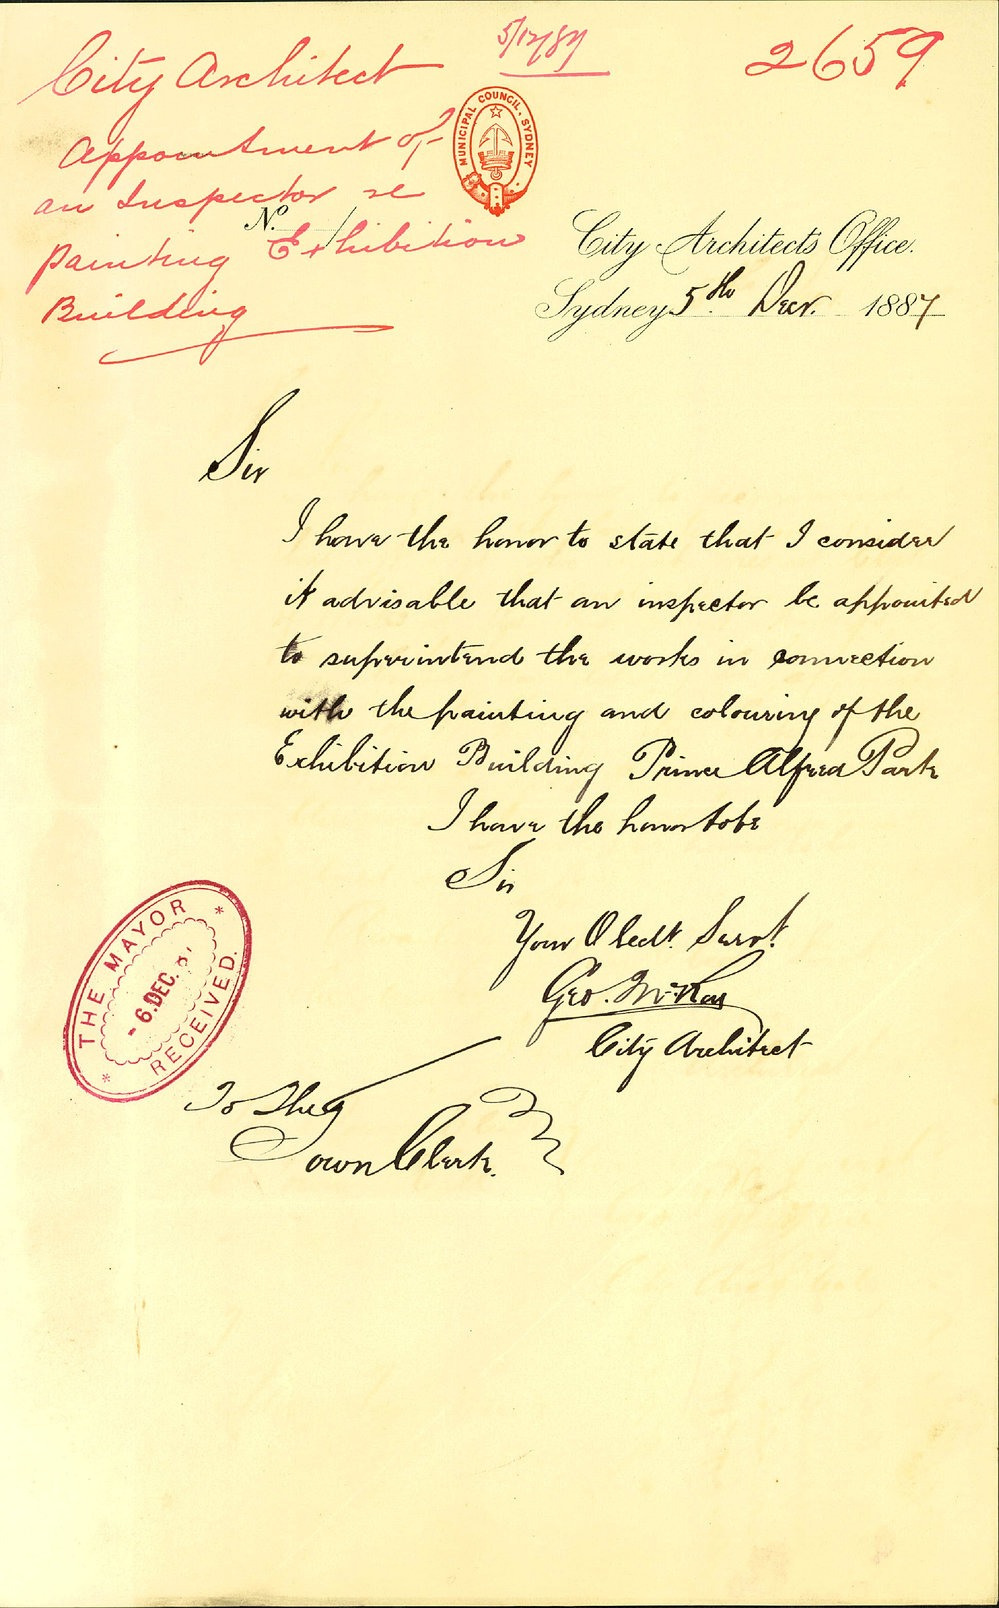 5/12/87
2659
City Architect
Appointment of
an Inspector re
painting Exhibition
Building
MUNICIPAL COUNCIL. SYDNEY
No.
City Architects Office.
Sydney 5th. Decr. 1887
Sir
I have the honor to state that I consider
it advisable that an inspector be appointed
to superintend the works in connection
with the painting and colouring of the
Exhibition Building Prince Alfred Park
I have the honor to be
Sir
Your Obedt. Servt.
Geo. McRae
City Architect
THE MAYOR
- 6.DEC.
RECEIVED.
To The
Town Clerk.